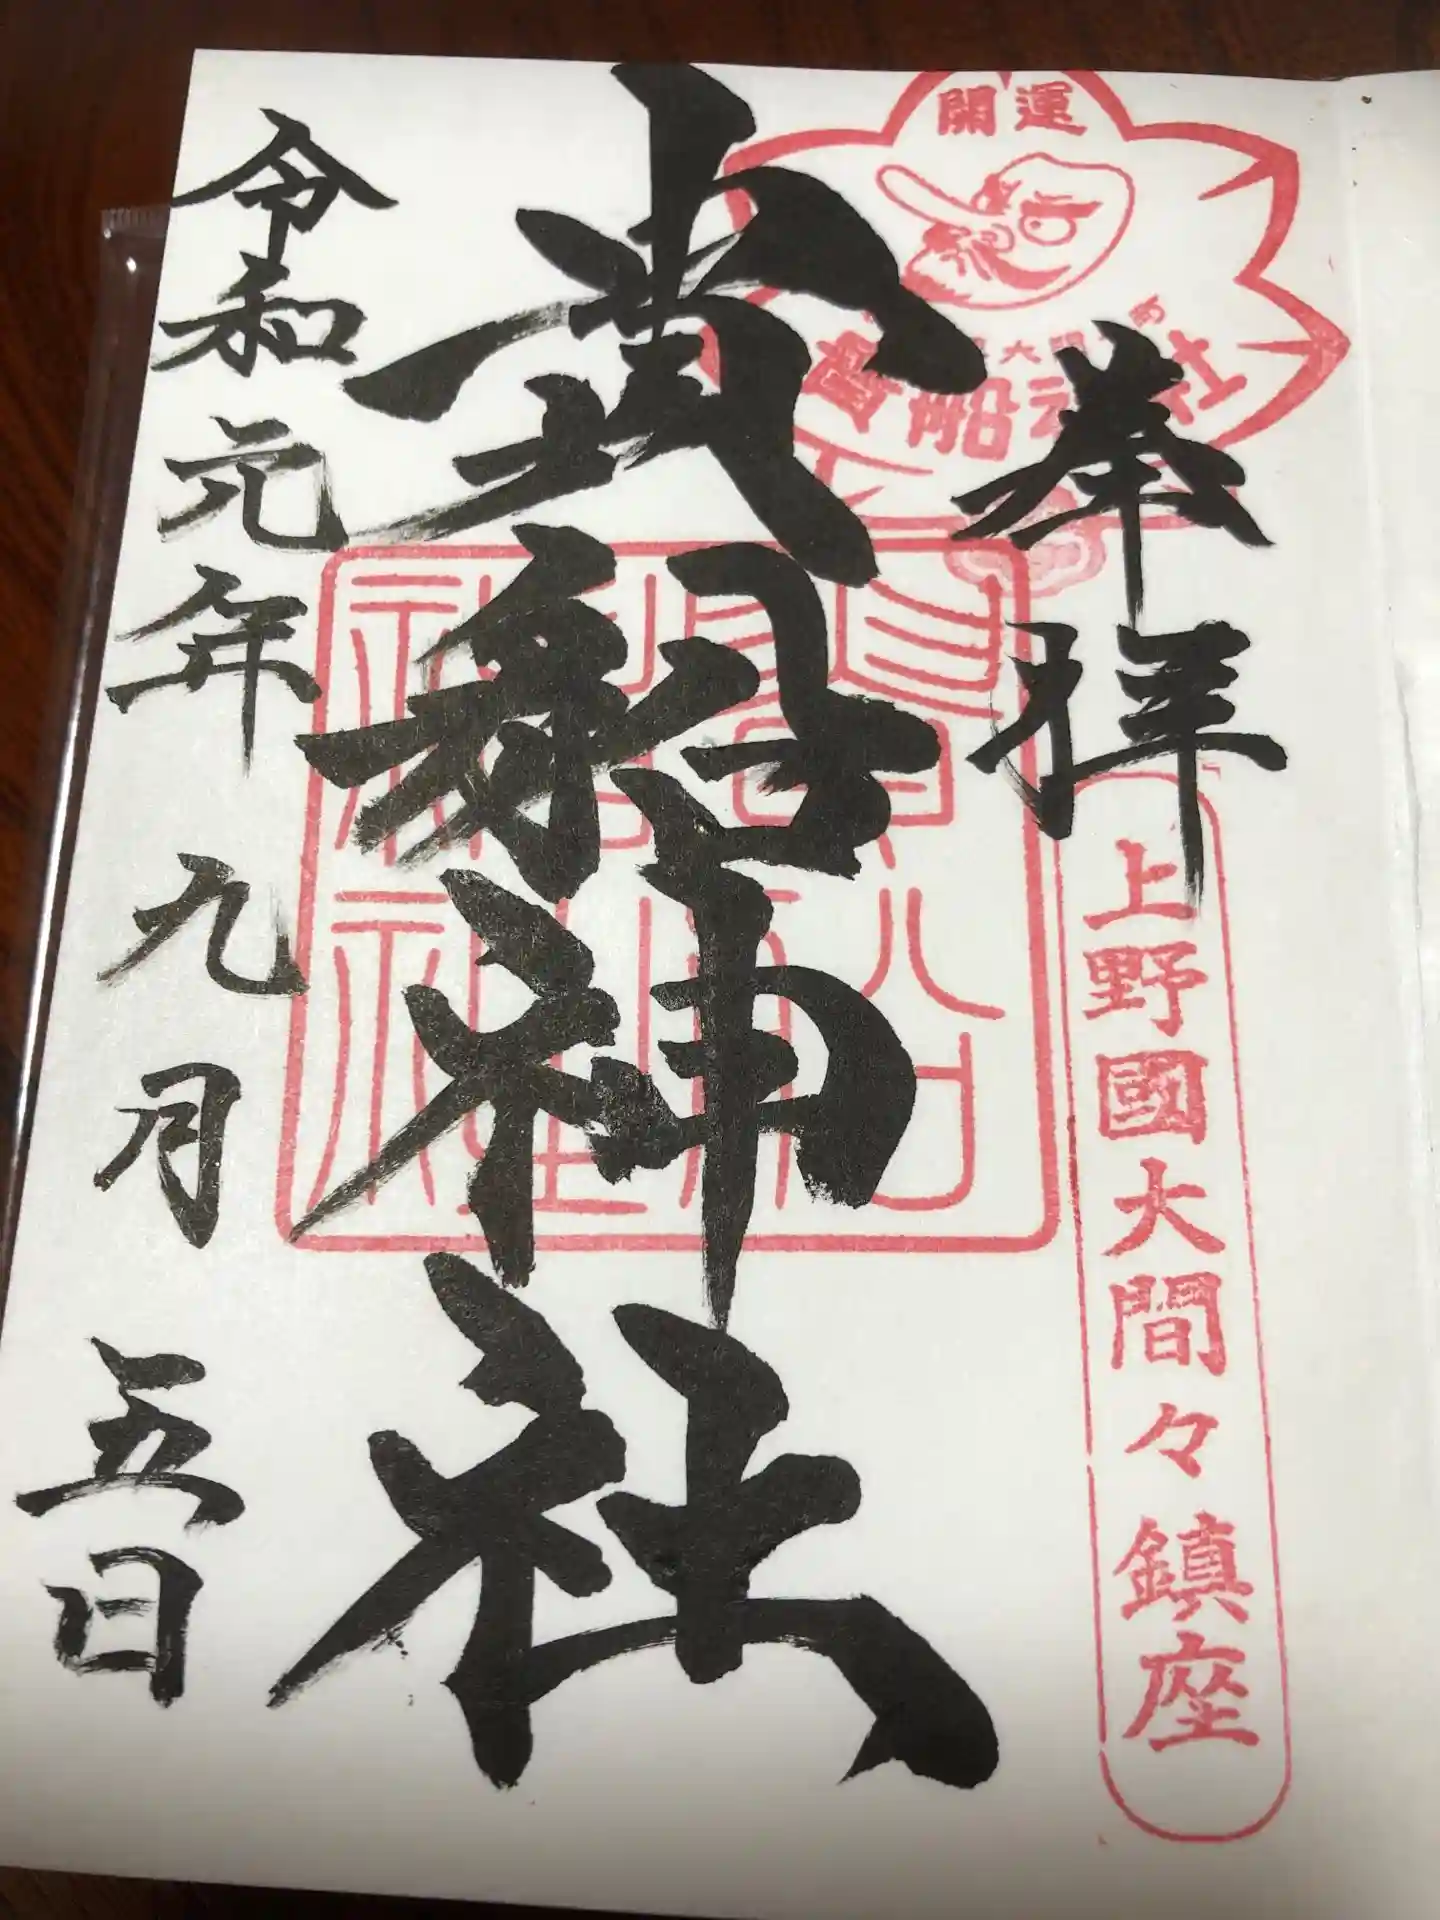 開運
貴船神社
奉拝
上野國大間々鎮座
貴船神社
令和元年九月五日